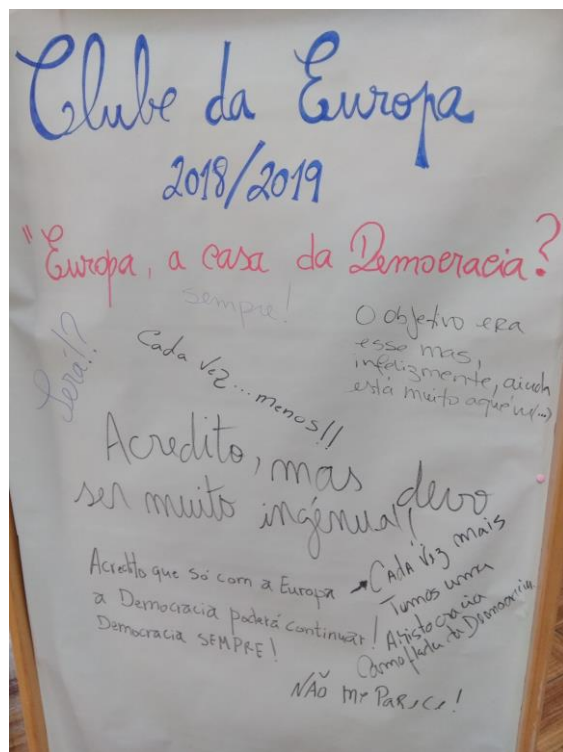 Clube da Europa
2018/2019
"Europa, a casa da Democracia?
sempre!
Será!?
Cada vez... menos!!
O objetivo era
esse mas,
infelizmente, ainda
está muito aquém(...)
Acredito, mas devo
ser muito ingénua!
Acredito que só com a Europa
a Democracia poderá continuar!
Democracia SEMPRE!
CADA VEZ mais
Temos uma
Aristocracia
Camoflada da Democracia
NÃO ME PARECE!